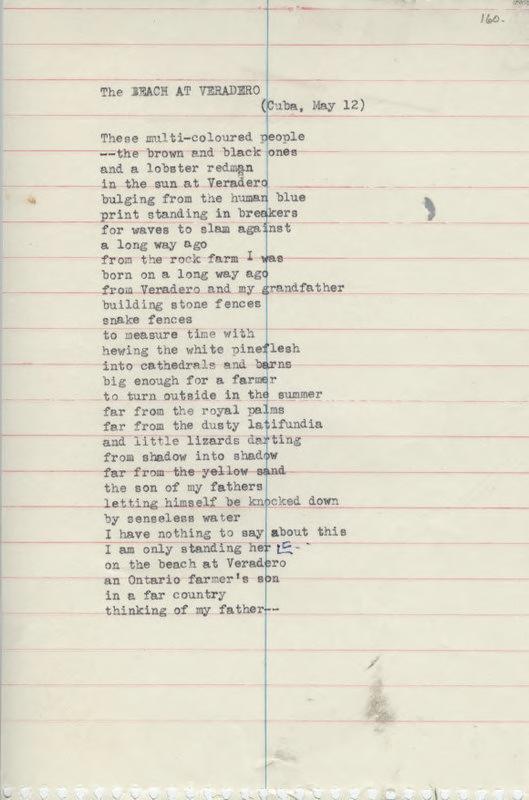 160.
The BEACH AT VERADERO
(Cuba, May 12)
These multi-coloured people
--the brown and black ones
and a lobster redman
in the sun at Veradero
bulging from the human blue
print standing in breakers
for waves to slam against
a long way ago
from the rock farm I was
born on a long way ago
from Veradero and my grandfather
building stone fences
snake fences
to measure time with
hewing the white pineflesh
into cathedrals and barns
big enough for a farmer
to turn outside in the summer
far from the royal palms
far from the dusty latifundia
and little lizards darting
from shadow into shadow
far from the yellow sand
the son of my fathers
letting himself be knocked down
by senseless water
I have nothing to say about this
I am only standing herE--
on the beach at Veradero
an Ontario farmer's son
in a far country
thinking of my father--